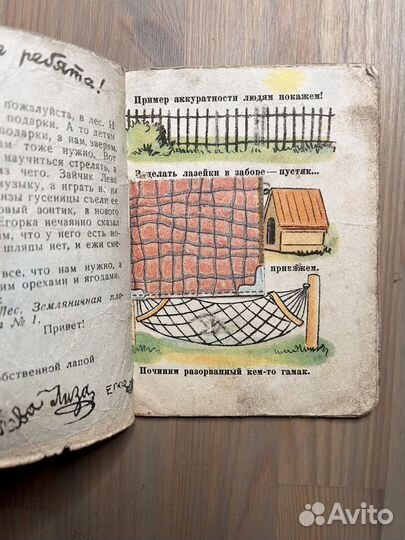 ребята!
пожалуйста, в лес. И
подарки. А то детям
подарки, а нам, зверям,
нам тоже нужно. Вот
научиться стрелять, а
из чего. Зайчик Лева
музыку, а играть не на
Лизы гусеницы съели ее
новый зонтик, а нового
Егорка нечаянно сказал
шляпы нет, и ежи сме-
все, что нам нужно, а
им орехами и ягодами.
Лес. Земляничная по-
№ 1.
Привет!
собственной лапой
Лева Лиза Егор
Пример аккуратности людям покажем!
Заделать лазейки в заборе — пустяк...
привяжем.
Починим разорванный кем-то гамак.
Avito